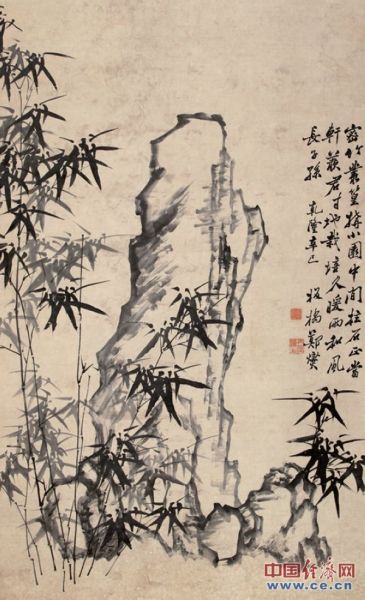 密竹叢篁擠小園中間柱石正當
軒羨君才地栽培久暖雨和風
長子孫 乾隆辛巳 板橋鄭燮
中国经济网
www.ce.cn